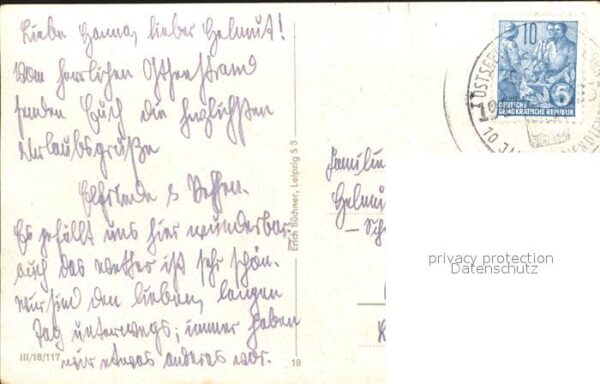 Liebe Hanna, lieber Helmut!
Vom herrlichen Ostseestrand
senden Euch die herzlichsten
Urlaubsgrüße
Elfriede &
Es gefällt uns hier wunderbar,
auch das Wetter ist sehr schön.
Wir sind den lieben, langen
Tag unterwegs; immer haben
wir etwas anderes vor.
III/18/117
18
Erich Büchner, Leipzig S 3
10
5
DEUTSCHE
DEMOKRATISCHE REPUBLIK
OSTSEE
10 JA
Familie
Helmut
privacy protection
Datenschutz